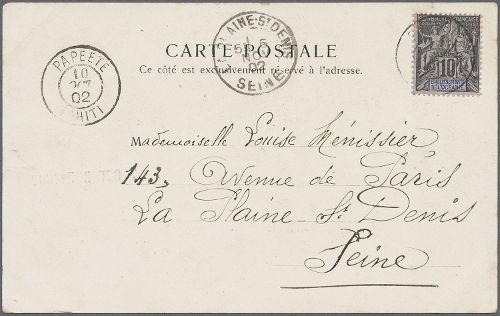 CARTE POSTALE
Ce côté est exclusivement réservé à l'adresse.
PAPEETE
10
OCT
02
TAHITI
LA PLAINE-ST DENIS
NOV
02
SEINE
10
Mademoiselle Louise Ménissier
143, Avenue de Paris
La Plaine St Denis
Seine